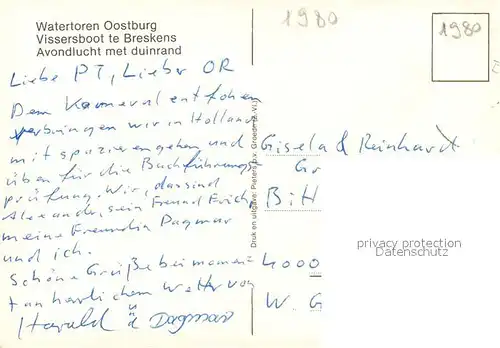 Watertoren Oostburg
Vissersboot te Breskens
Avondlucht met duinrand
1980
1980
Liebe PT, Lieber OR
Dem Karneval entflohen
verbringen wir in Holland
mit spazierengehen und
üben für die Buchführungs-
prüfung. Wir, das sind
Alexander, sein Freund Erich,
meine Freundin Dagmar
und ich.
Schöne Grüße bei momen=
tan herrlichem Wetter von
Harald u Dagmar
Druk en uitgave:
Gisela & Reinhardt
Gr
Bitt
4000
W. G
privacy protection
Datenschutz